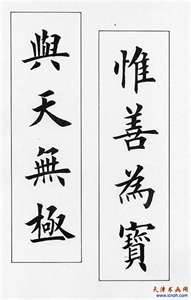 惟善為寶
與天無極
天津书画网
www.tcroh.com